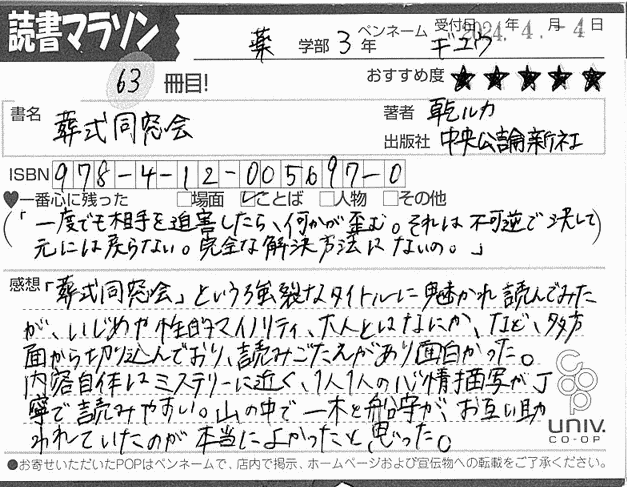 読書マラソン
薬 学部 3 年 ペンネーム ギユウ 受付日 2024年 4月 -4日
63 冊目!
おすすめ度 ★★★★★
書名 葬式同窓会
著者 乾ルカ
出版社 中央公論新社
ISBN 978-4-12-005697-0
♥一番心に残った □場面 ☑ことば □人物 □その他
(「一度でも相手を迫害したら、何かが歪む。それは不可逆で決して
元には戻らない。完全な解決方法はないの。」)
感想 「葬式同窓会」という強裂なタイトルに魅かれ読んでみた
が、いじめや性的マイノリティ、大人とはなにか、など、多方
面から切り込んでおり、読みごたえがあり面白かった。
内容自体はミステリーに近く、1人1人の心情描写が丁
寧で読みやすい。山の中で一木と船守が、お互い助
われていたのが本当によかったと思った。
coop
UNIV.
CO-OP
●お寄せいただいたPOPはペンネームで、店内で掲示、ホームページおよび宣伝物への転載をご了承ください。